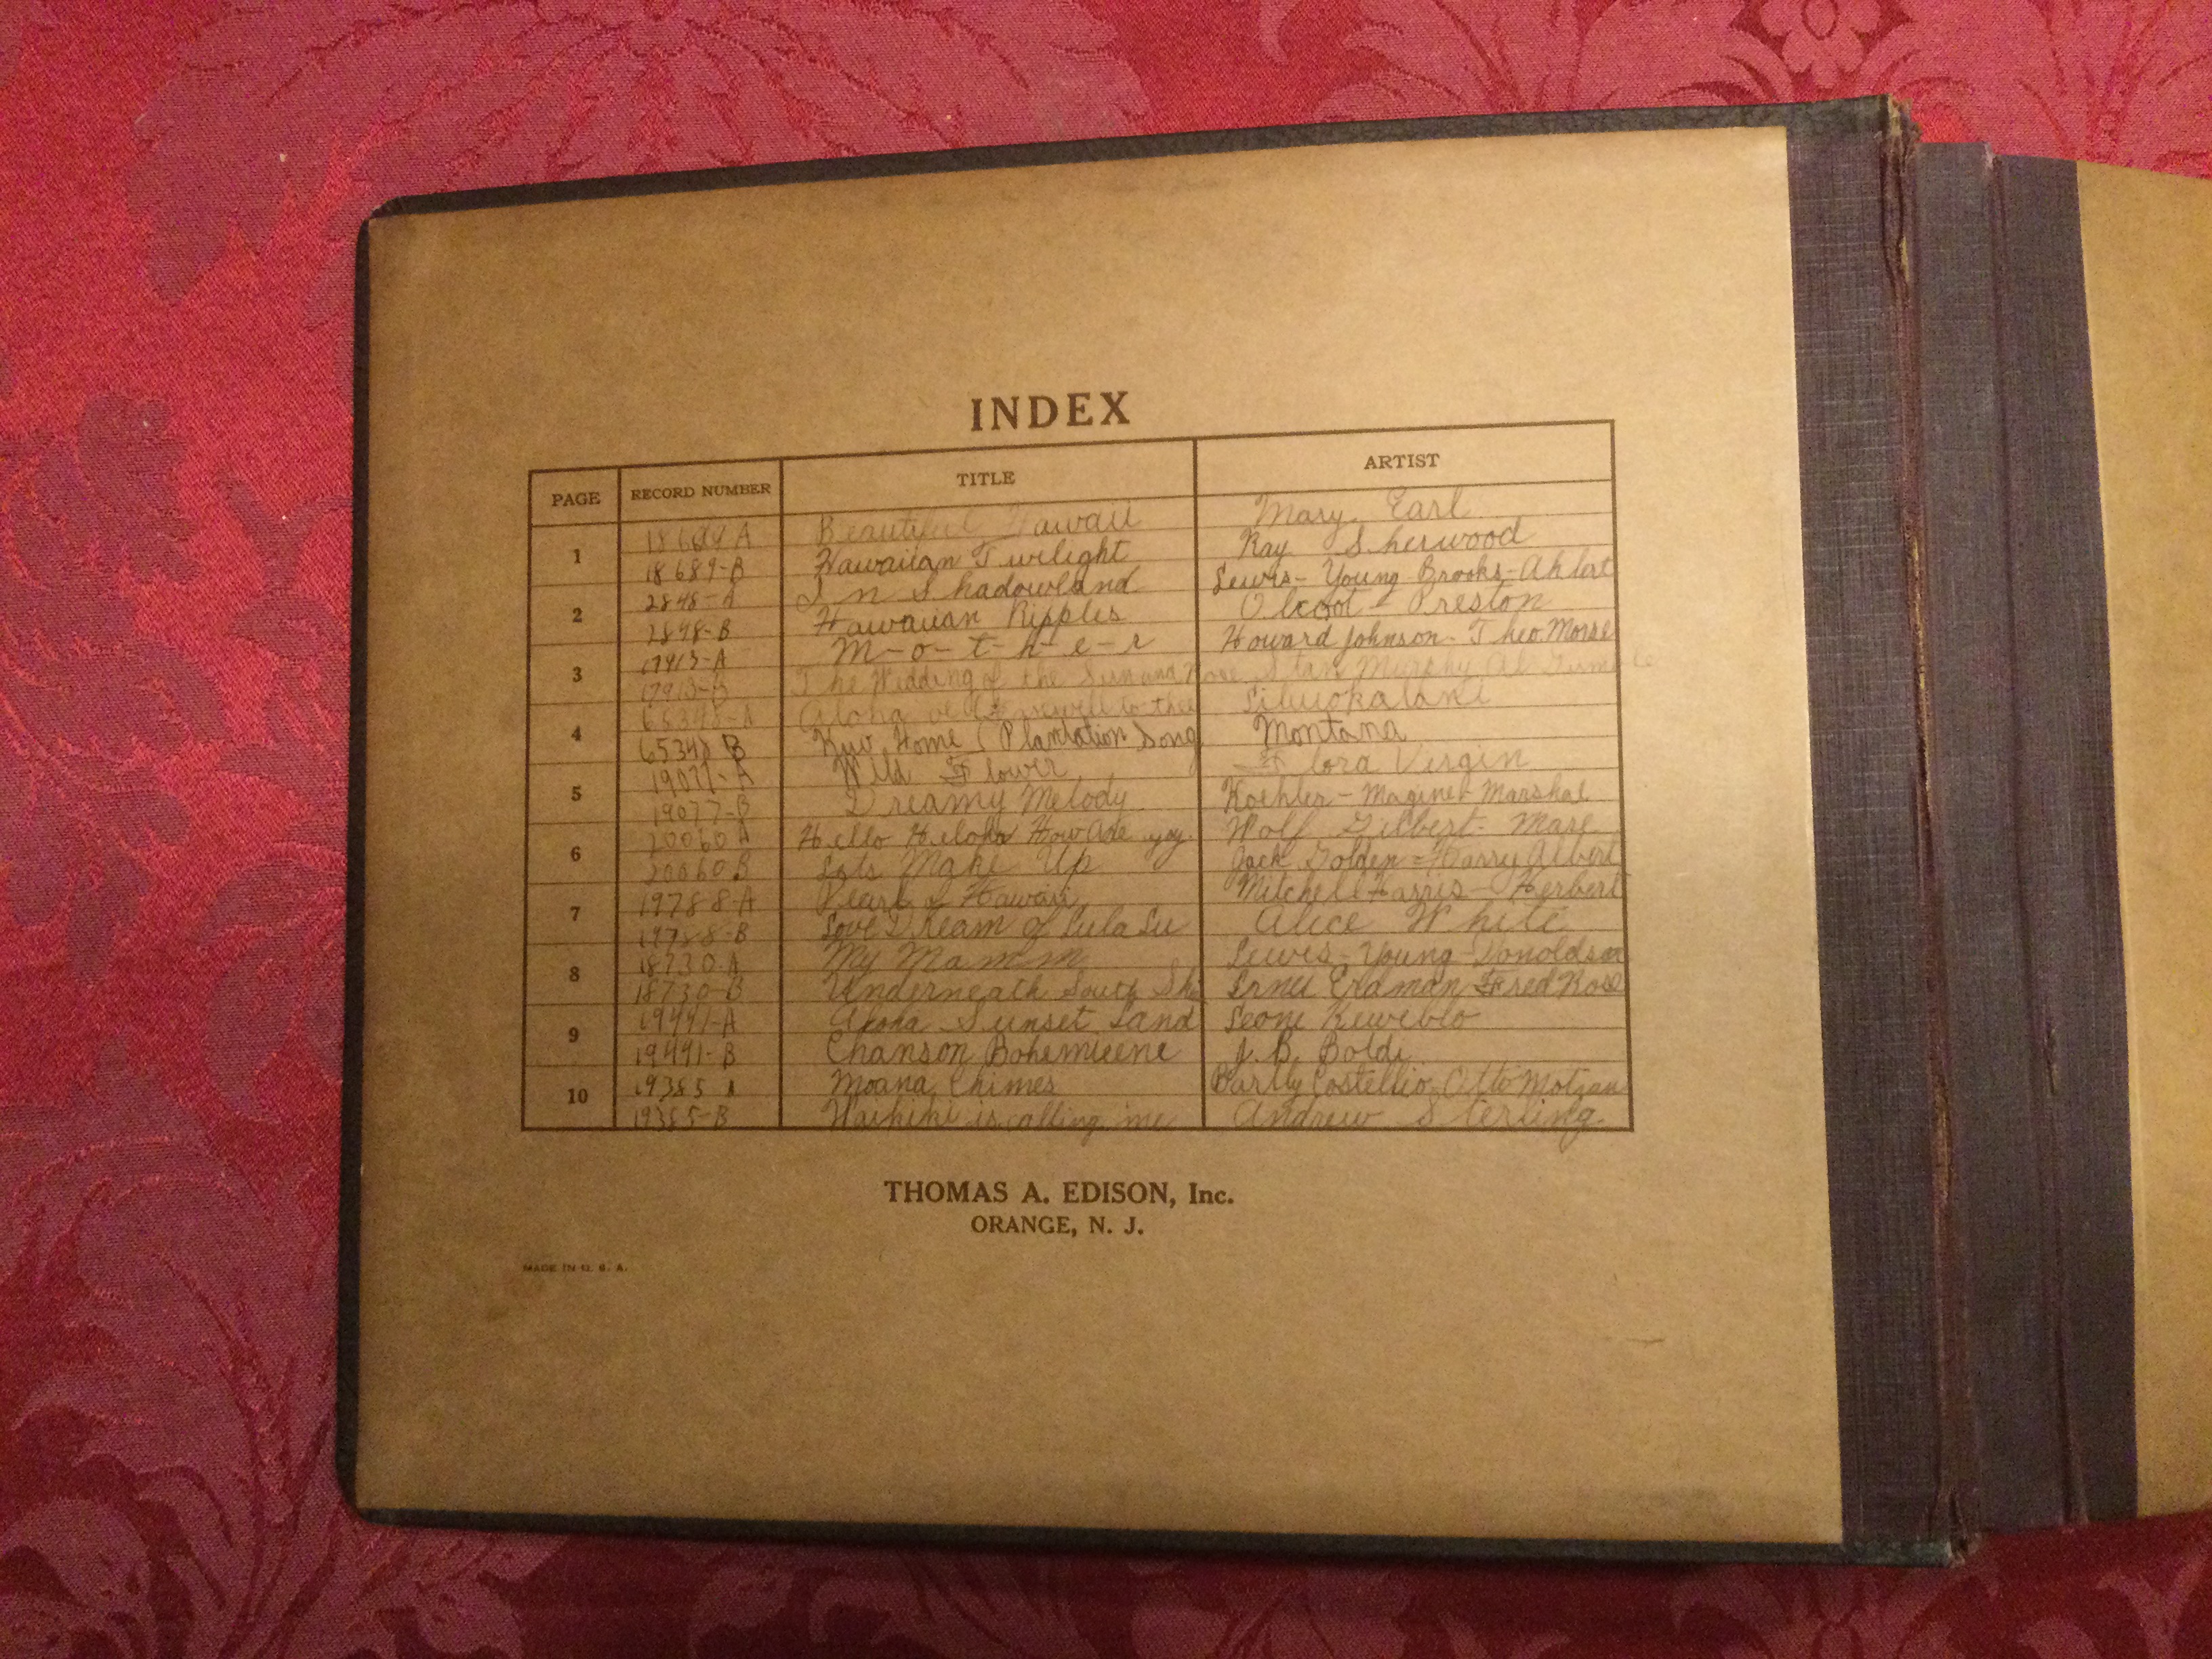 INDEX
PAGE RECORD NUMBER TITLE ARTIST
1 18689 A Beautiful Hawaii Mary Earl
18689-B Hawaiian Twilight Ray Sherwood
2 2848-A In Shadowland Lewis-Young-Brooks-Ahlert
2848-B Hawaiian Ripples Olcoot-Preston
3 17913-A M-o-t-h-e-r Howard Johnson-Theo Morse
17913-B The Wedding of the Sun and Rose Stan Murphy Al
4 65348-A Aloha oe (Farewell to thee Liliuokalani
65348 B Home (Plantation Song Montana
5 19077-A Wild Flower Flora Virgin
19077-B Dreamy Melody Koehler-Maginet-Marshal
6 20060 A Hello Heloha How Are you Wolf Gilbert-
20060 B Lets Make Up Jack Golden=Harry Albert
7 19788-A Pearl of Hawaii Mitchell Harris-Herbert
19788-B Love Dream of Lula Lu Alice White
8 18730-A My Mamm Lewis-Young-Donoldson
18730-B Underneath South Sky Ernie Erdman Fred Rose
9 19491-A Aloha Sunset Land
19491-B Chanson Bohemieene J. B. Boldi
10 19385 A Moana Chimes Bartly Costellio-Otto Motzan
19385-B Waikiki is calling me Andrew Sterling
THOMAS A. EDISON, Inc.
ORANGE, N. J.
MADE IN U. S. A.